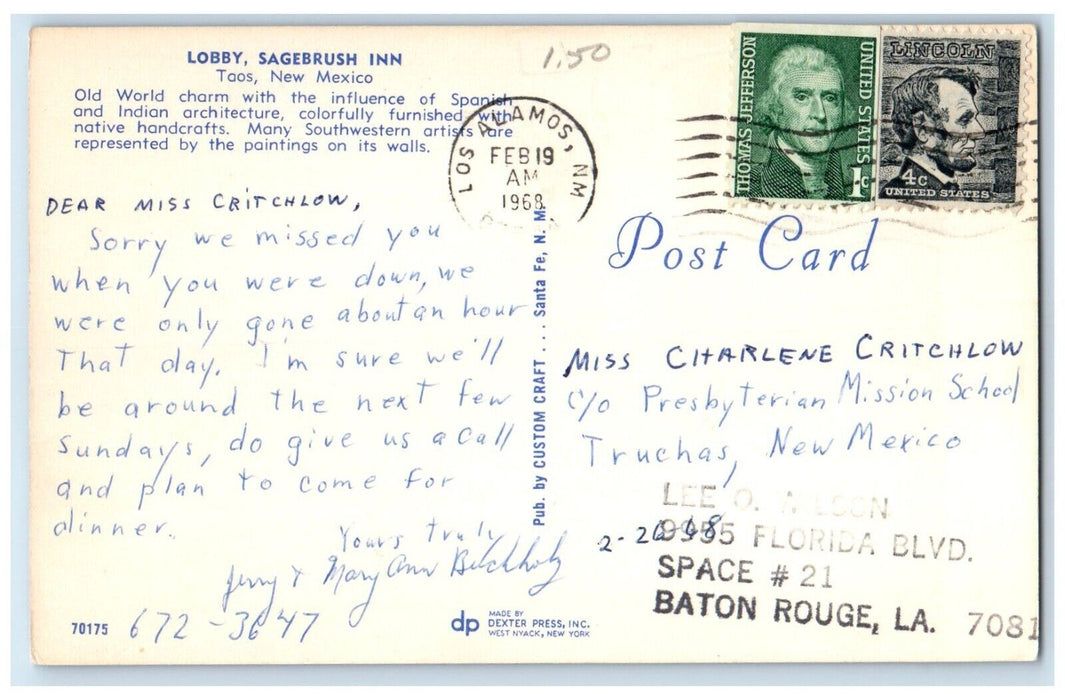 LOBBY, SAGEBRUSH INN
Taos, New Mexico
Old World charm with the influence of Spanish
and Indian architecture, colorfully furnished with
native handcrafts. Many Southwestern artists are
represented by the paintings on its walls.
1.50
LOS ALAMOS, NM
FEB 19
AM
1968
THOMAS JEFFERSON
UNITED STATES
1c
LINCOLN
4c
UNITED STATES
DEAR MISS CRITCHLOW,
Sorry we missed you
when you were down, we
were only gone about an hour
That day. I'm sure we'll
be around the next few
Sundays, do give us a call
and plan to come for
dinner.
Yours truly
Jerry & Mary Ann
672-3647
70175
Pub. by CUSTOM CRAFT . . . Santa Fe, N. M.
dp
MADE BY
DEXTER PRESS, INC.
WEST NYACK, NEW YORK
Post Card
MISS CHARLENE CRITCHLOW
c/o Presbyterian Mission School
Truchas, New Mexico
LEE O. WILSON
2-26-68
9955 FLORIDA BLVD.
SPACE # 21
BATON ROUGE, LA. 7081